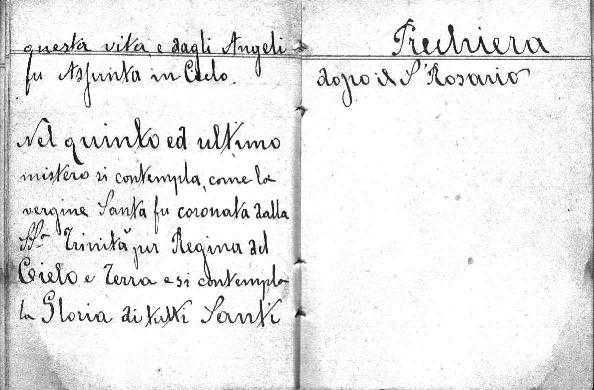 questa vita, e dagli Angeli
fu Assunta in Cielo.
Nel quinto ed ultimo
mistero si contempla, come la
vergine Santa fu coronata dalla
SS.ma Trinità per Regina del
Cielo e Terra e si contempla
la Gloria di tutti Santi
Prechiera
dopo il S. Rosario